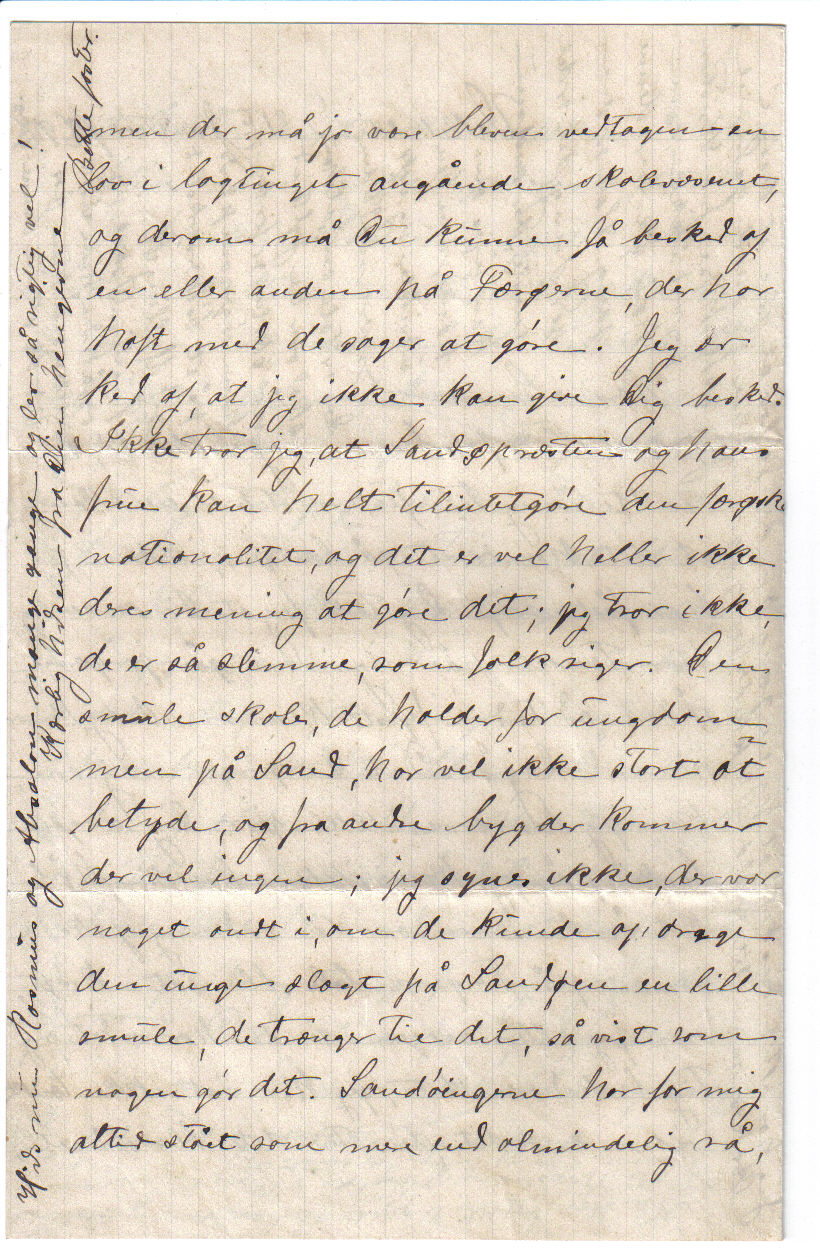 men der må jo være bleven vedtagen en
lov i lagtinget angående skolevæsenet,
og derom må Du kunne få besked af
en eller anden på Færøerne, der har
haft med de sager at göre. Jeg er
ked af, at jeg ikke kan give Dig besked.
Ikke tror jeg, at Sandøpræsten og hans
frue kan helt tilintetgöre den færøske
nationalitet, og det er vel heller ikke
deres mening at göre det; jeg tror ikke,
de er så slemme, som folk siger. Den
smule skole, de holder for ungdom-
men på Sand, har vel ikke stort at
betyde, og fra andre bygder kommer
der vel ingen; jeg synes ikke, der var
noget ondt i, om de kunde opdrage
den unge slægt på Sandøen en lille
smule, de trænger til det, så vist som
nogen gör det. Sandöingerne har for mig
altid stået som mere end almindelig rå,
Hils nu Rasmus og Absalon mange gange og lev så rigtig vel!
Kærlig hilsen fra Din hengivne